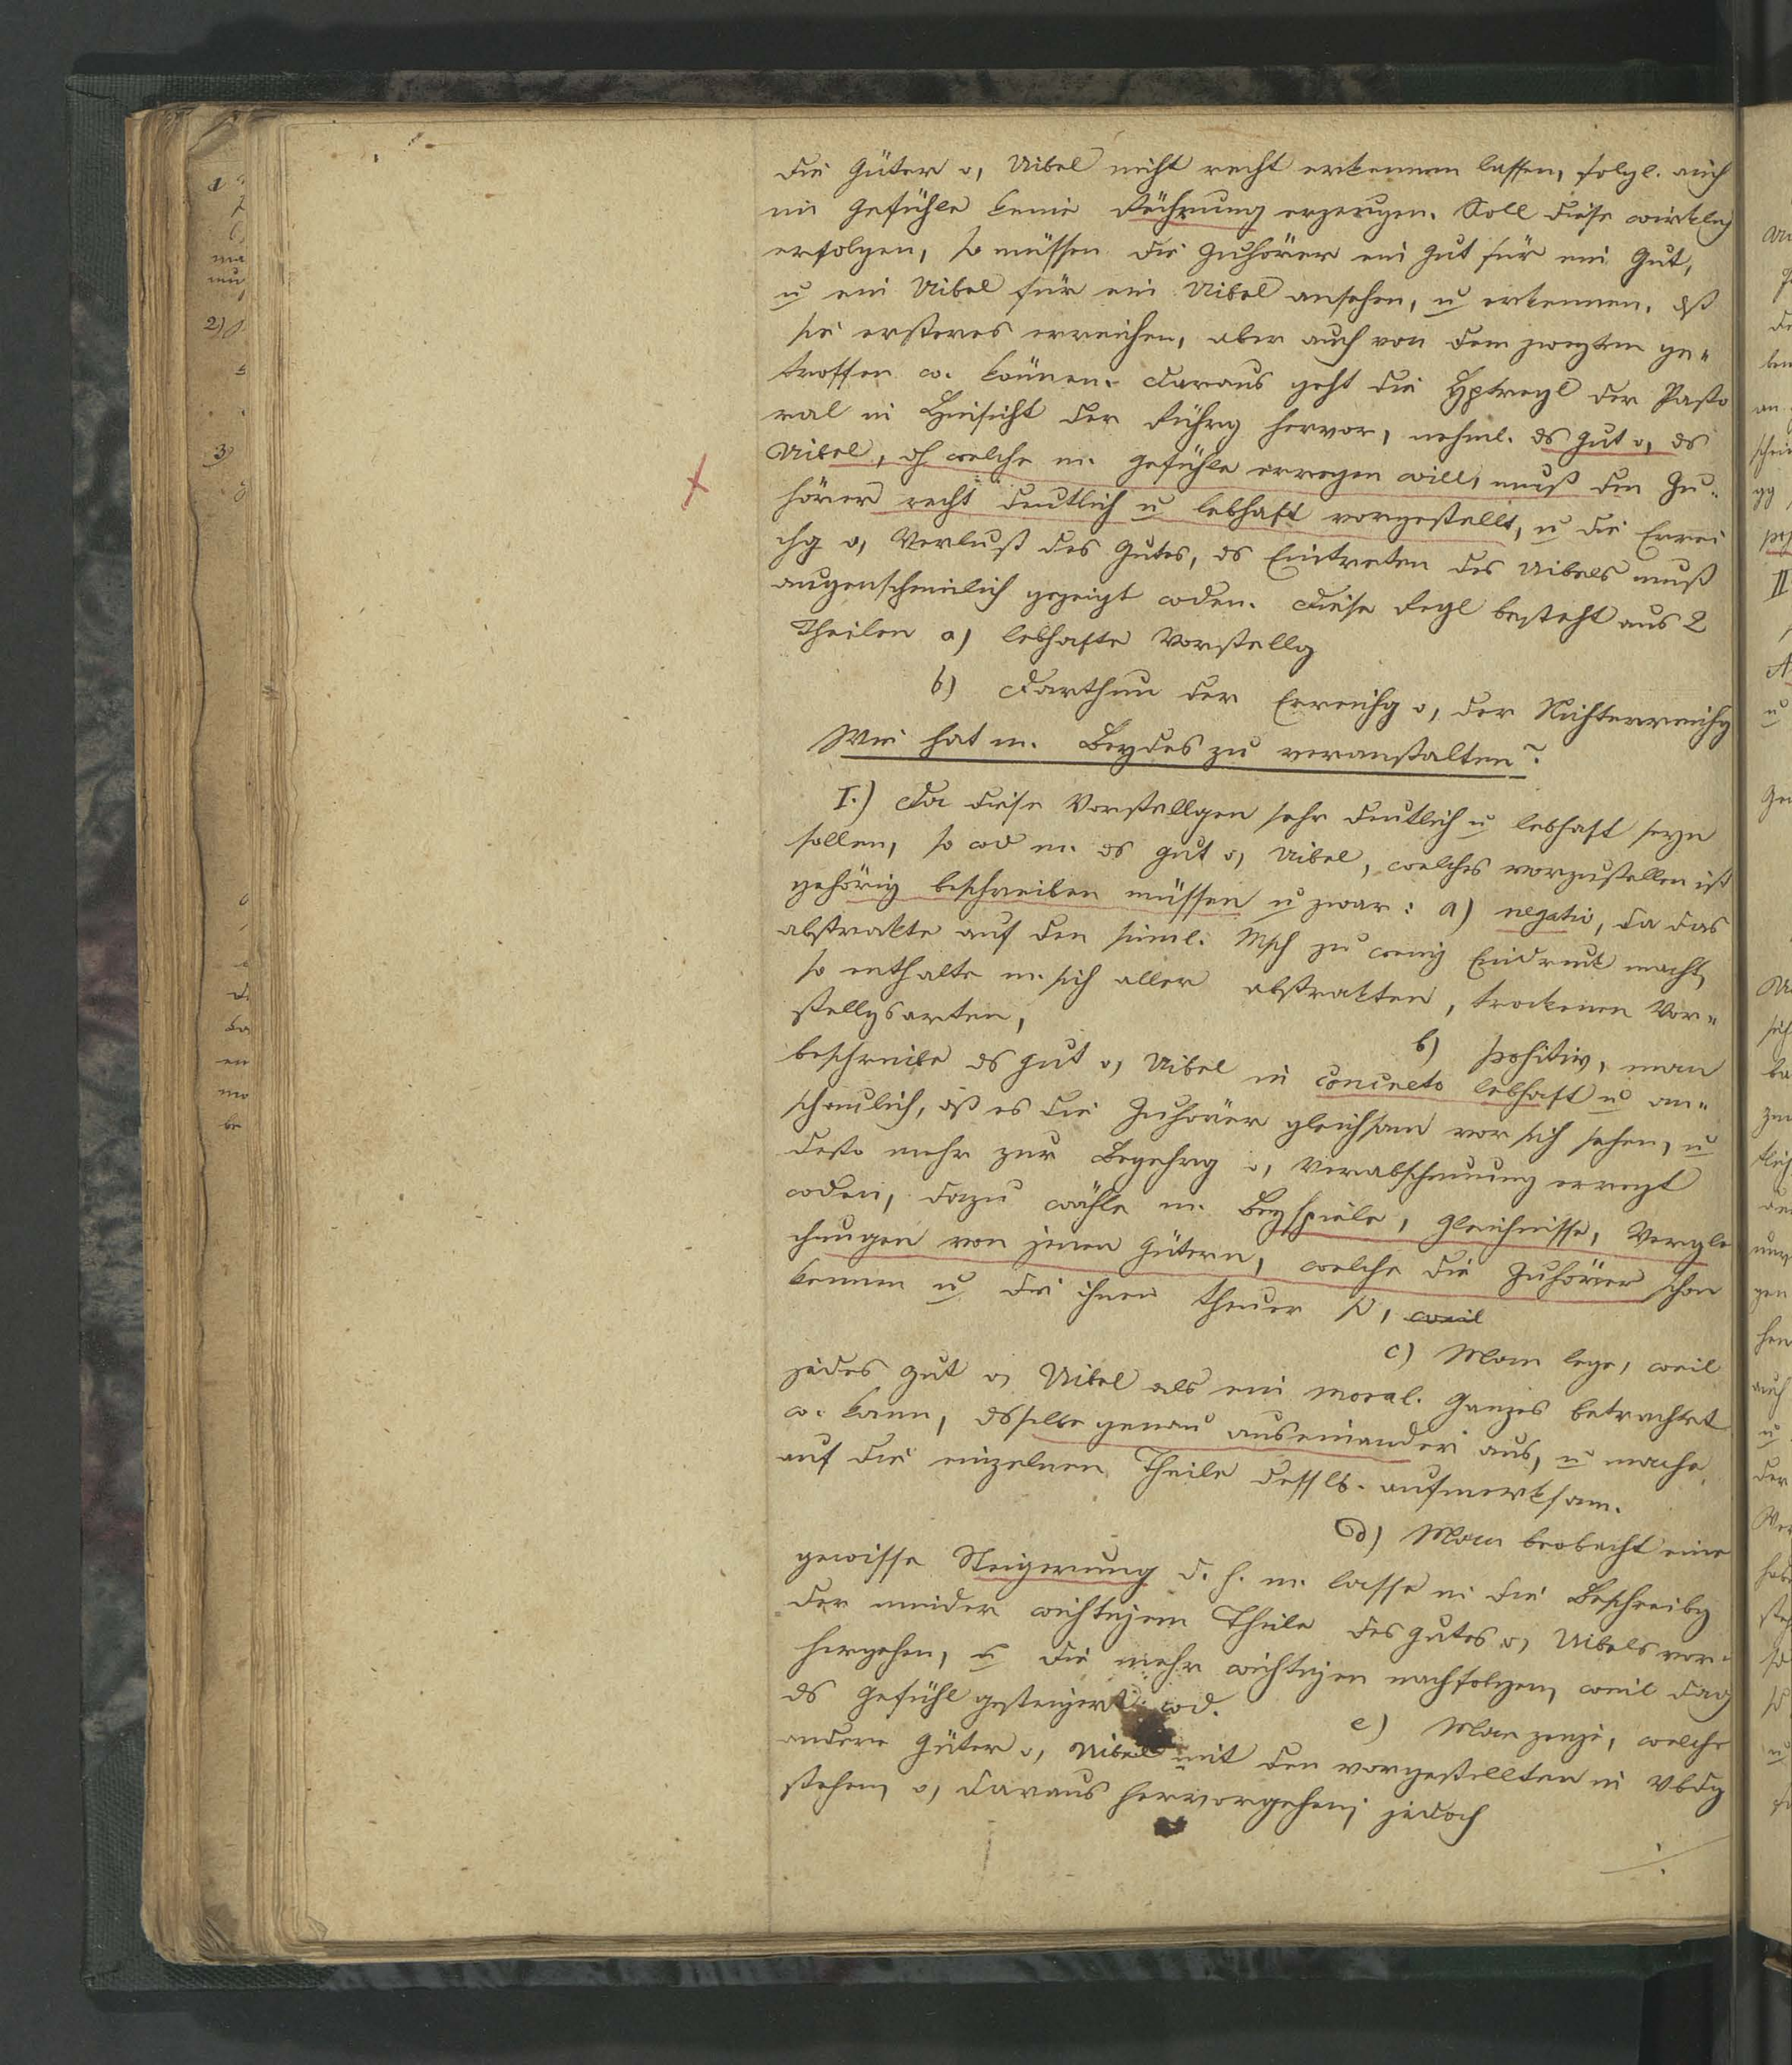 die Güter o, Uibel nicht recht erkennen lassen, folgl. auch
im Gefühle keine Rührung erzeugen. Soll diese wirklich
erfolgen, so müssen die Zuhörer ein Gut für ein Gut,
u ein Uibel für ein Uibel ansehen, u erkennen, dß
sie ersteres erreichen, aber auch von dem zweyten ge„
troffen w. können. Daraus geht die Hptregl der Pasto
ral in Hinsicht der Rührg hervor, nehml. ds Gut o, ds
Uibel, dh welche m. Gefühle erregen will, muß den Zu„
hörern recht deutlich u lebhaft vorgestellt, u die Errei
chg o, Verlust des Gutes, ds Eintreten des Uibels muß
augenscheinlich gezeigt wden. Diese Regl besteht aus 2
Theilen a) lebhafte Vorstellg
b) Darthun der Erreichg o, der Nichterreichg
Wie hat m. Beydes zu veranstalten?
I.) Da diese Vorstellgen sehr deutlich u lebhaft seyn
sollen, so wd m. ds Gut o, Uibel, welches vorzustellen ist
gehörig beschreiben müssen u zwar: a) negativ, da das
abstrakte auf den sinnl. Msch zu wenig Eindruck macht,
so enthalte m. sich aller abstrakten, trockenen Vor„
stellgsarten,
b) positiv, man
beschreibe ds Gut o, Uibel in concreto lebhaft u an„
schaulich, dß es die Zuhörer gleichsam vor sich sehen, u
desto mehr zur Begehrg o, Verabscheuung erregt
wden, dazu wähle m. Beyspiele, Gleichnisse, Vergle
chungen von jenen Gütern, welche die Zuhörer schon
kennen u die ihnen theuer s, weil
c) Man lege, weil
jedes Gut o, Uibel als ein moral. Ganzes betrachtet
w. kann, dsselbe genau auseinander aus, u mache
auf die einzelnen Theile desslb. aufmerksam.
d) Man beobacht eine
gewisse Steigerung d. h. m. lasse in die Beschreibg
der minder wichtigen Theile des Gutes o, Uibels vor„
hergehen, u die mehr wichtigen nachfolgen, weil
ds Gefühl gesteigert wd.
e) Man zeige, welche
andere Güter o, Uibel mit den vorgestellten in Vbdg
stehen, o, daraus hervorgehen; jedoch